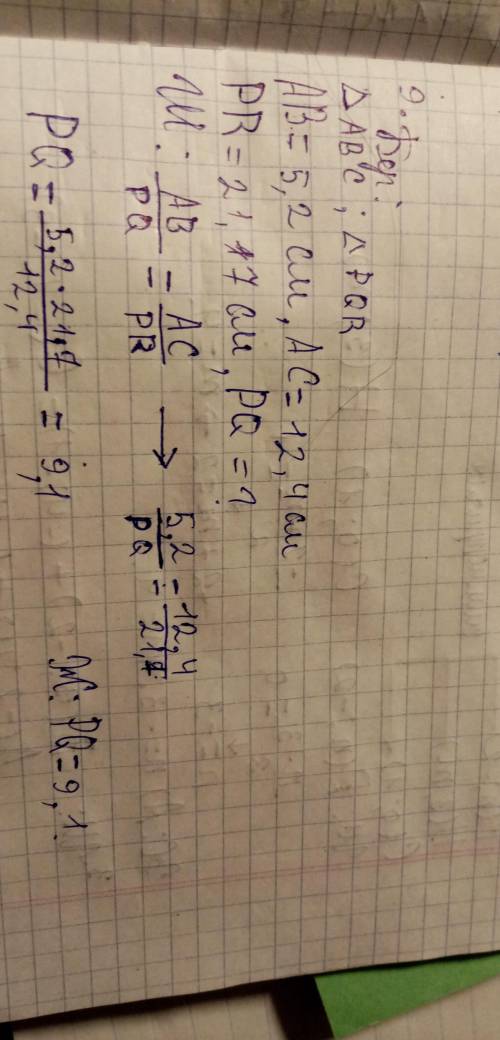 9. Бер:
△ABC ; △PQR
AB = 5,2 см, AC = 12,4 см
PR = 21,7 см, PQ = ?
Ш: AB/PQ = AC/PR → 5,2/PQ = 12,4/21,7
PQ = 5,2 · 21,7/12,4 = 9,1
Ж: PQ = 9,1.